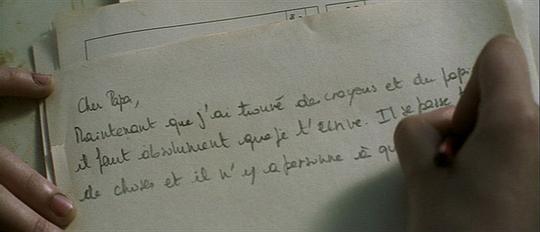 Cher Papa,
Maintenant que j'ai trouvé des crayons et du
il faut absolument que je t'écrive. Il se passe
de choses et il n'y a personne à